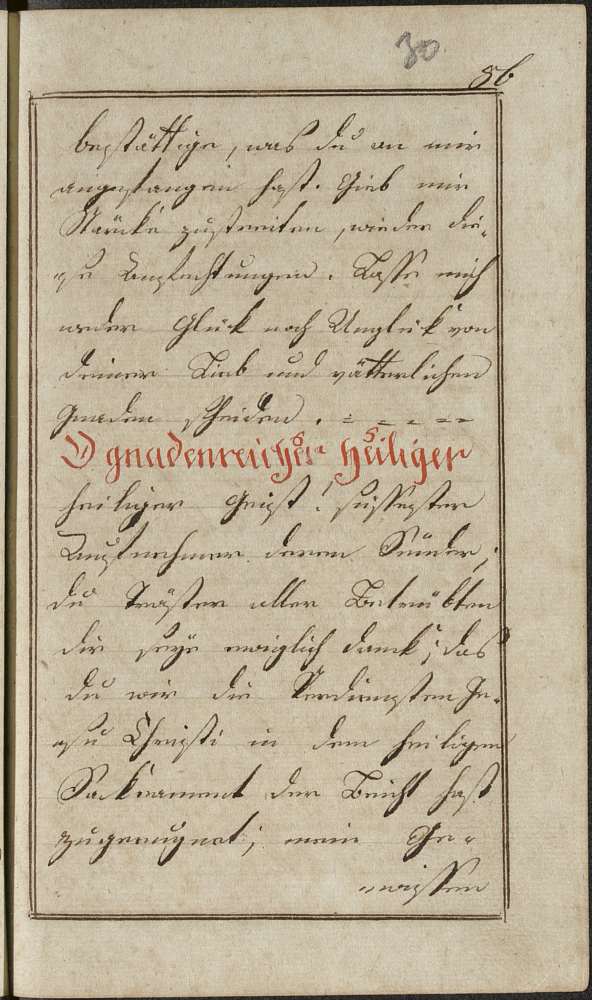 30
56
bestättige, was du an mir
angefangen hast. Gieb mir
Stärcke zustreiten, wieder die=
se Anfechtungen. Lasse mich
weder Glück noch Unglück von
deiner Lieb und vätterlichen
Gnaden scheiden.
O gnadenreicher heiliger
heiliger Geist! süssester
Aufnehmer deren Sünder,
du Tröster aller Betrübten
dir seye ewiglich danck; das
du mir die Verdiensten Je=
su Christi in dem heiligen
Sackrament der Beicht hast
zugeeugnet; mein Ge=
wissen